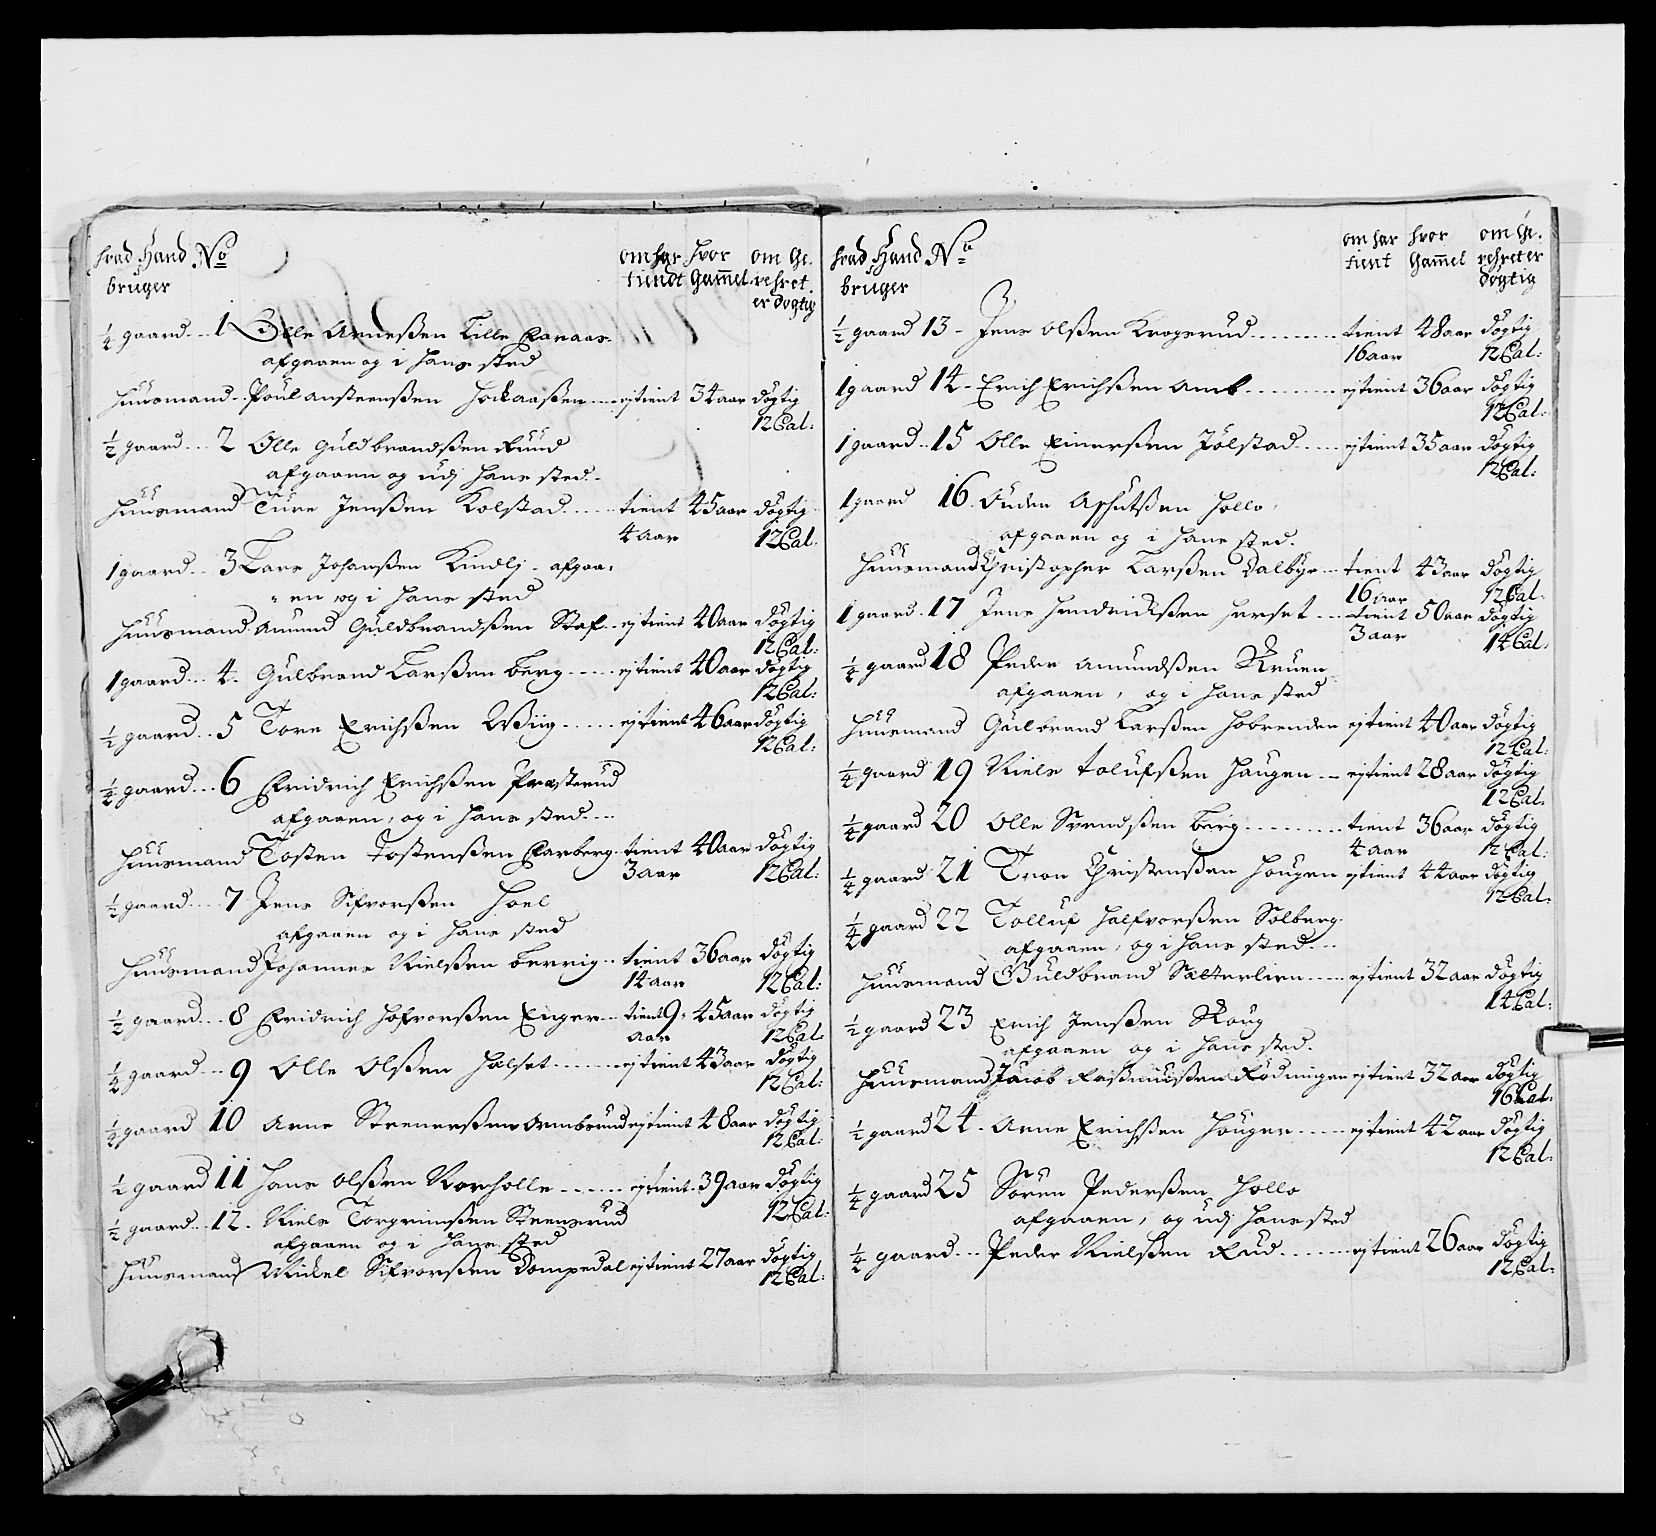 hvad Hand No
bruger
om har hvor om Ge.
tiendt Gam̄el. vehret
er døgtig
¼ gaard... 1 Olle Arneßen Lille Canaas
afgaaen og i hans sted
Huusmand.. Poul ansteenßen Hockaaßen.... ej tient 34 aar døgtig
12 Cal:
½ gaard.... 2 Olle Guldbrandßen Ruud
afgaaen og udj hans sted..
Huusmand Ture Jenßen Kolstad...... tient 45 aar døgtig
4 aar 12 Cal.
1 gaard... 3 Lars Johanßen Kindlj. afgaa,
"en og i hans sted
Huusmand. Amund Guldbrandßen Staf... ej tient 40 aar døgtig
12 Cal:
1 gaard... 4. Gulbrand Larßen Berg..... ej tient 40 aar døgtig
12 Cal:
½ gaard.. 5 Tore Erichßen Wßiig..... ej tient 46 aar døgtig
12 Cal:
¼ gaard... 6 Fridrich Erichßen Præsterud
afgaaen, og i hans sted....
Huusmand Tosten Tostenßen Carberg. tient 40 aar døgtig
3 aar 12 Cal:
½ gaard.... 7 Jens Sifvorßen Hoel
afgaaen og i hans sted
Huusmand Johannes Nielßen Berrig.. tient 36 aar døgtig
14 aar 12 Cal:
½ gaard... 8 Fridrich Hofvorßen Eiger... tient 9. 45 aar døgtig
aar 12 Cal.
¼ gaard... 9 Olle Olßen Halset....... ej tient 43 aar døgtig
12 Cal:
¼ gaard 10 Arne Steenerßen Armbsrud ej tient 48 aar døgtig
12 Cal.
½ gaard 11 Hans Olßen Rorholle...... ej tient. 39 aar døgtig
12 Cal:
½ gaard... 12. Niels Torgrimßen Steensrud
afgaaen og i hans sted
Huusmand Mickel Sifvorßen Dompedal ej tient 27 aar døgtig
12 Cal:
hvad Hand No
bruger
om har hvor om Ge.
tient Gam̄el vehret er
døgtig
½ gaard 13 - Jens Olßen Krogsrud......... tient 48 aar døgtig
16 aar 12 Cal:
1 gaard 14 - Erich Erichßen Amb......... ej tient 36 aar døgtig
12 Cal:
1 gaard.. 15 Olle Einerßen Jølstad..... ej tient 35 aar døgtig
12 Cal:
1 gaard 16. Ouden Ashutßen Hollo,
afgaaen og i hans sted.
Huusmand Christopher Larßen Dalbye... tient 43 aar døgtig
16 aar 12 Cal.
1 gaard.. 17 Jens Hendrickßen Herset.... tient 50 aar døgtig
3 aar 14 Cal.
¼ gaard 18 Peder Amundßen Skruen
afgaaen, og i hans sted
Huusmand Gulbrand Larßen Hobrenden ej tient 40 aar døgtig
12 Cal:
¼ gaard 19 Niels Tolufßen Haugen... ej tient 28 aar døgtig
12 Cal.
¼ gaard 20 Olle Svendßen Berg........ tient 36 aar døgtig
4 aar 12 Cal:
¼ gaard 21 Tron Christenßen Hougen ej tient 44 aar døgtig
12 Cal.
¼ gaard 22 Tolluf Halfvorßen Solberg.
afgaaen, og i hans sted...
Huusmand Guldbrand Sætterlien..... ej tient 32 aar døgtig
14 Cal:
½ gaard 23 Erich Jenßen Skoug
afgaaen og i hans sted.
Huusmand Jacob Raßmußen Rødningen ej tient 32 aar døgtig
16 Cal:
½ gaard 24. Arne Erichßen Houger..... ej tient 42 aar døgtig
12 Cal:
¼ gaard 25 Søren Pederßen Hollo
afgaaen, og udj hans sted
½ gaard... Peder Nielßen Rud....... ej tient 26 aar døgtig
12 Cal: